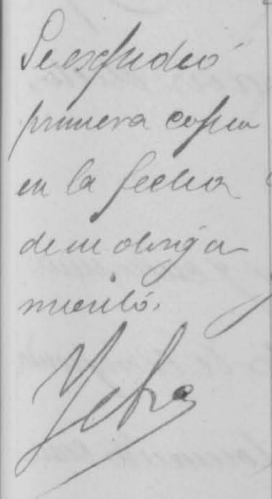 Se expidió
primera copia
en la fecha
de su otorga
miento.